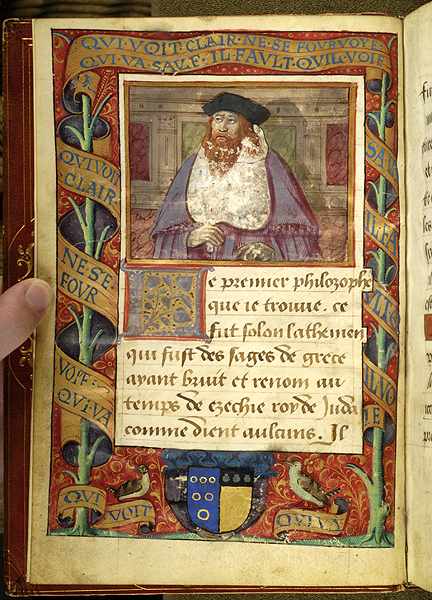 QVI·VOIT·CLAIR·NE·SE·POVRVOYE·
QVI·VA·SAVF·IL·FAVLT·QVIL·VOIE
QVI·VOIT
CLAIR
NE·SE·
POVR
VOYE·
QVI·VA
SAV
IL·FA
VLT·
QVI
LVO
IE
Le premier philozophe
que ie trouve. ce
fut solon lathenien
qui fust des sages de grece
ayant bruit et renom au
temps de ezechie roy de Juda
comme dient aulcuns. Il
QVI
VOIT
QVI·VA